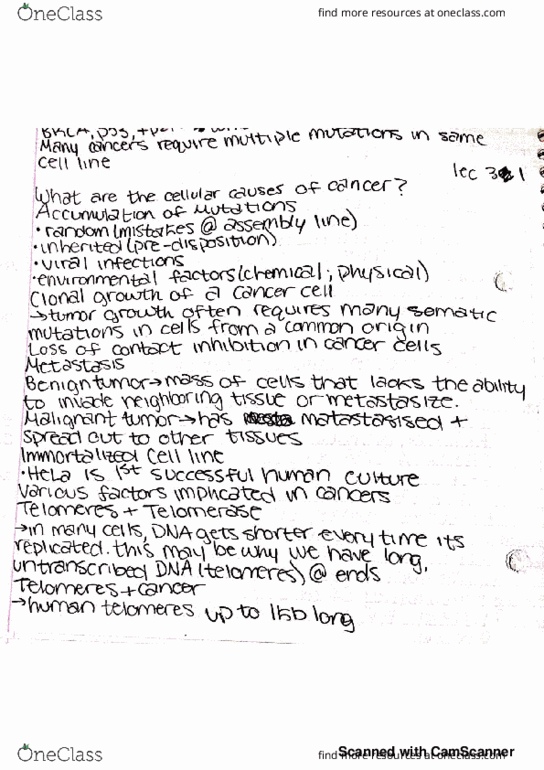 OneClass
find more resources at oneclass.com
BRCA, p53,
Many cancers require multiple mutations in same
cell line
lec 3 1
What are the cellular causes of cancer?
Accumulation of Mutations
•random (mistakes @ assembly line)
•inherited (pre-disposition)
•viral infections
•environmental factors (chemical, physical)
Clonal growth of a cancer cell
→tumor growth often requires many somatic
mutations in cells from a common origin
Loss of contact inhibition in cancer cells
Metastasis
Benign tumor→mass of cells that lacks the ability
to invade neighboring tissue or metastasize.
Malignant tumor→has matastasised +
spread out to other tissues
Immortalized cell line
•HeLa is 1st successful human culture
Various factors implicated in cancers
Telomeres + Telomerase
→in many cells, DNA gets shorter every time its
replicated. this may be why we have long,
untranscribed DNA (telomeres) @ ends
Telomeres + cancer
→human telomeres up to long
OneClass
find more resources at oneclass.com
Scanned with CamScanner